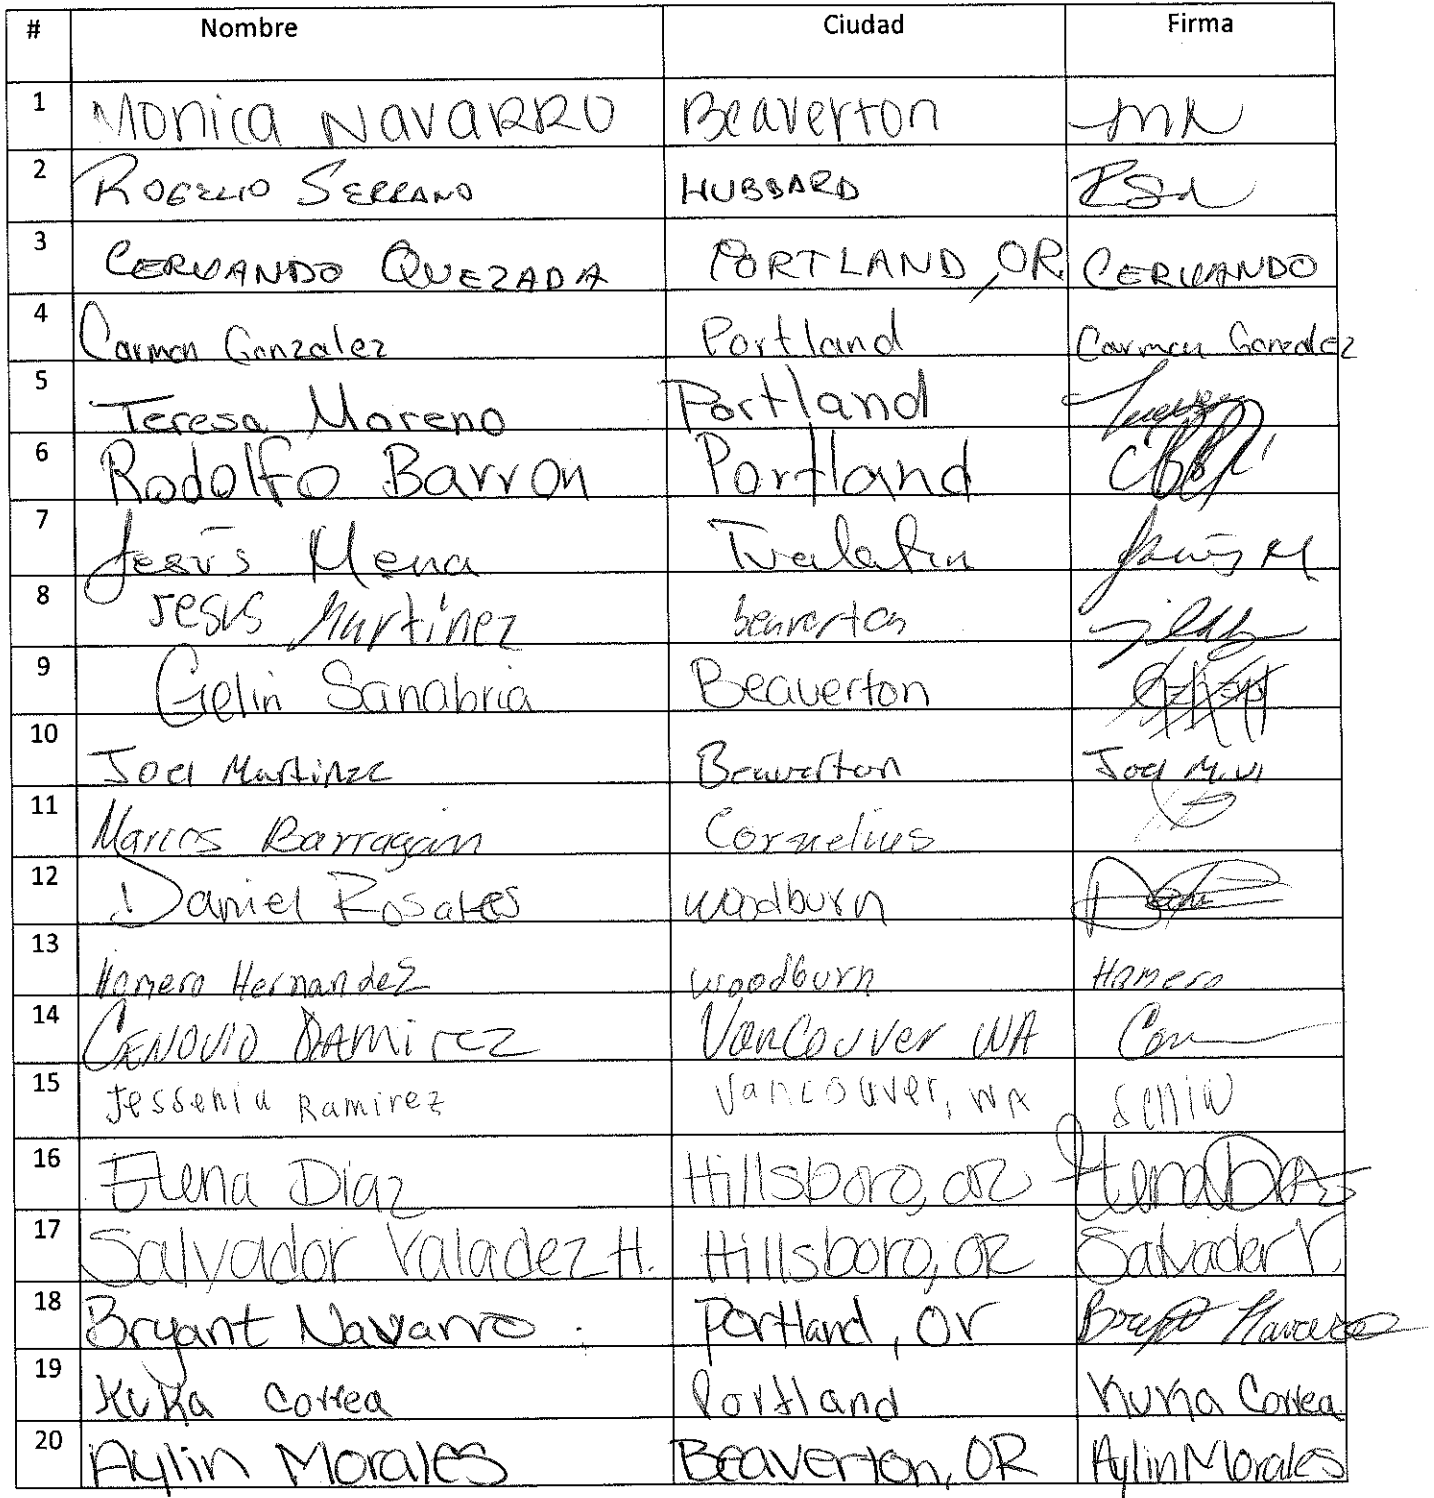 # Nombre Ciudad Firma
1 Monica Navarro Beaverton MN
2 Rogelio Serrano Hubbard
3 Cervando Quezada Portland, OR Cervando
4 Carmen Gonzalez Portland Carmen Gonzalez
5 Teresa Moreno Portland
6 Rodolfo Barron Portland
7 Jesús Mena Tualatin Jesús M
8 Jesus Martinez beaverton
9 Gelin Sanabria Beaverton
10 Joel Martinez Beaverton Joel
11 Marcos Barragan Cornelius
12 Daniel Rosales woodburn
13 Homero Hernandez woodburn Homero
14 Cenovio Ramirez Vancouver WA
15 Jessenia Ramirez Vancouver, WA
16 Elena Diaz Hillsboro, OR Elena Diaz
17 Salvador Valadez H. Hillsboro, OR Salvador V.
18 Bryant Navarro. Portland, Or Bryant Navarro
19 Kuka Correa Portland Kuka Correa
20 Aylin Morales Beaverton, OR Aylin Morales